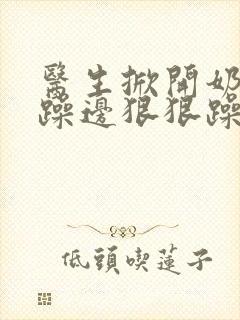 醫生掀開奶
躁邊狠狠躁
低頭喫蓮子